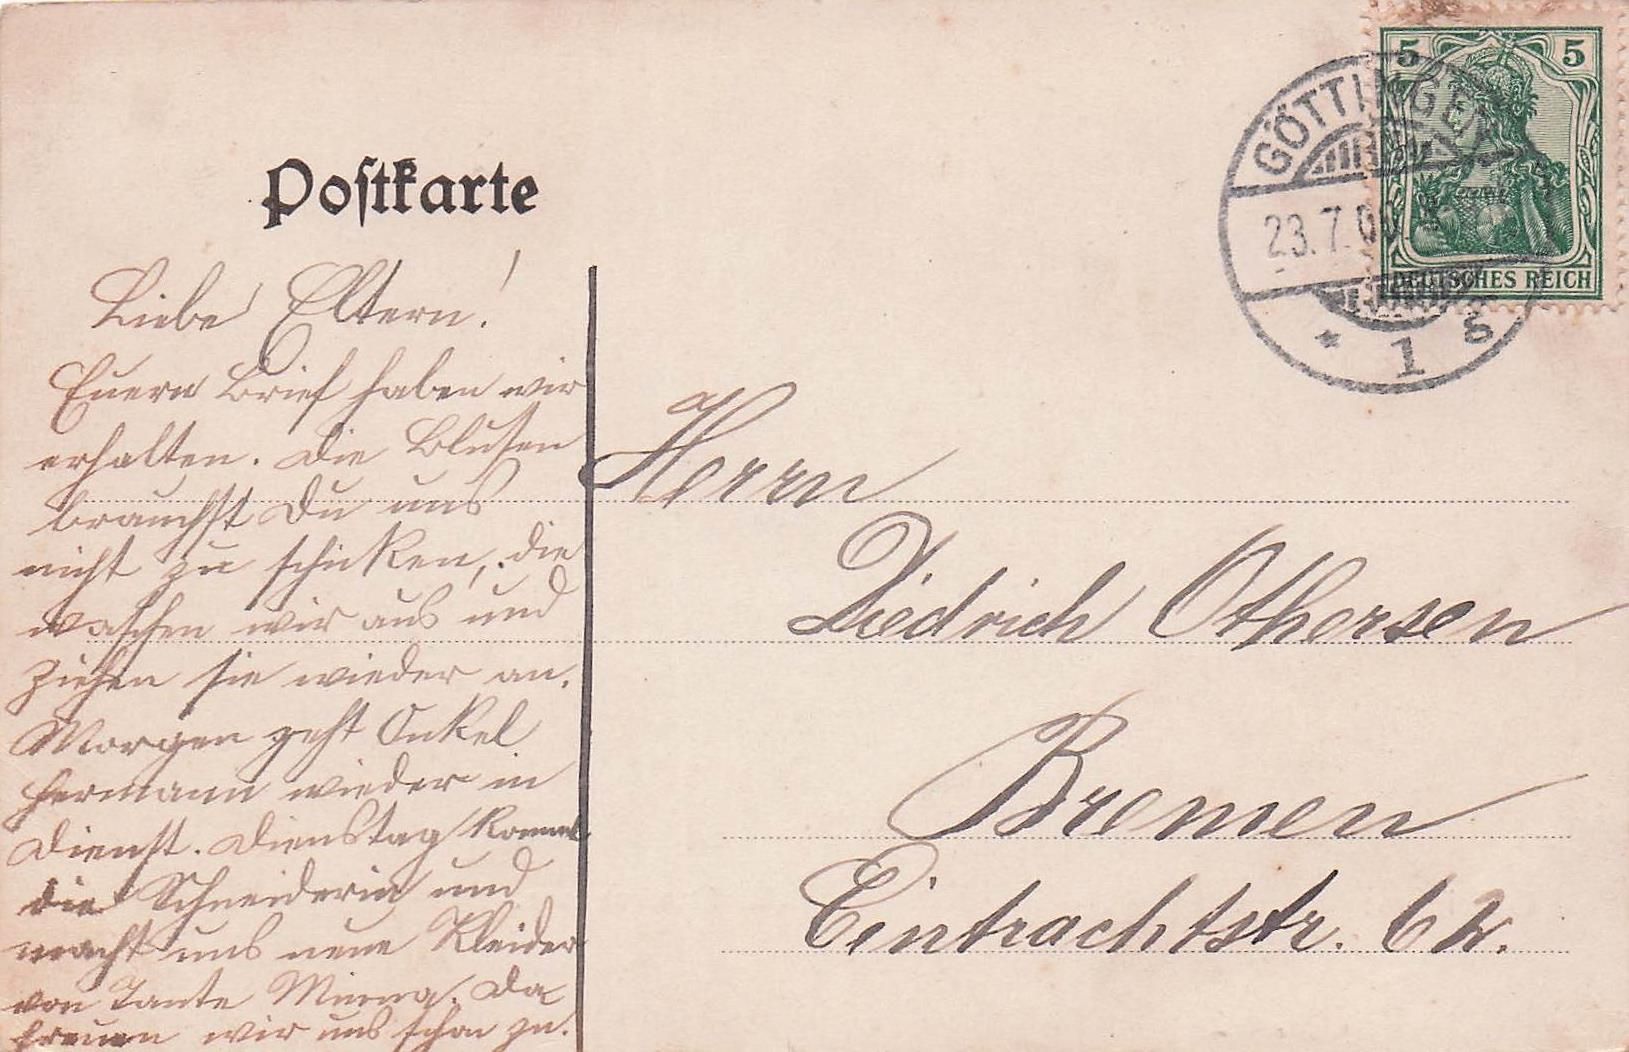 5 5
GÖTTINGEN
23.7.06.
DEUTSCHES REICH
* 1 g
Postkarte
Liebe Eltern!
Euern Brief haben wir
erhalten. Die Blusen
brauchst Du uns
nicht zu schicken, die
waschen wir aus und
ziehen sie wieder an.
Morgen geht Onkel
Hermann wieder in
Dienst. Dienstag kommt
die Schneiderin und
macht uns neue Kleider
von Tante Minna. Da
freuen wir uns schon zu.
Herrn
Diedrich Othersen
Bremen
Eintrachtstr. 62.